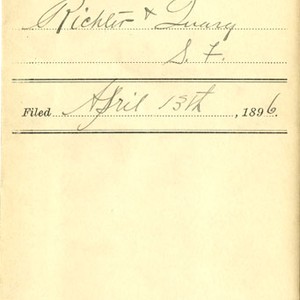 Richter & Quary
S. F.
Filed April 13th, 1896.